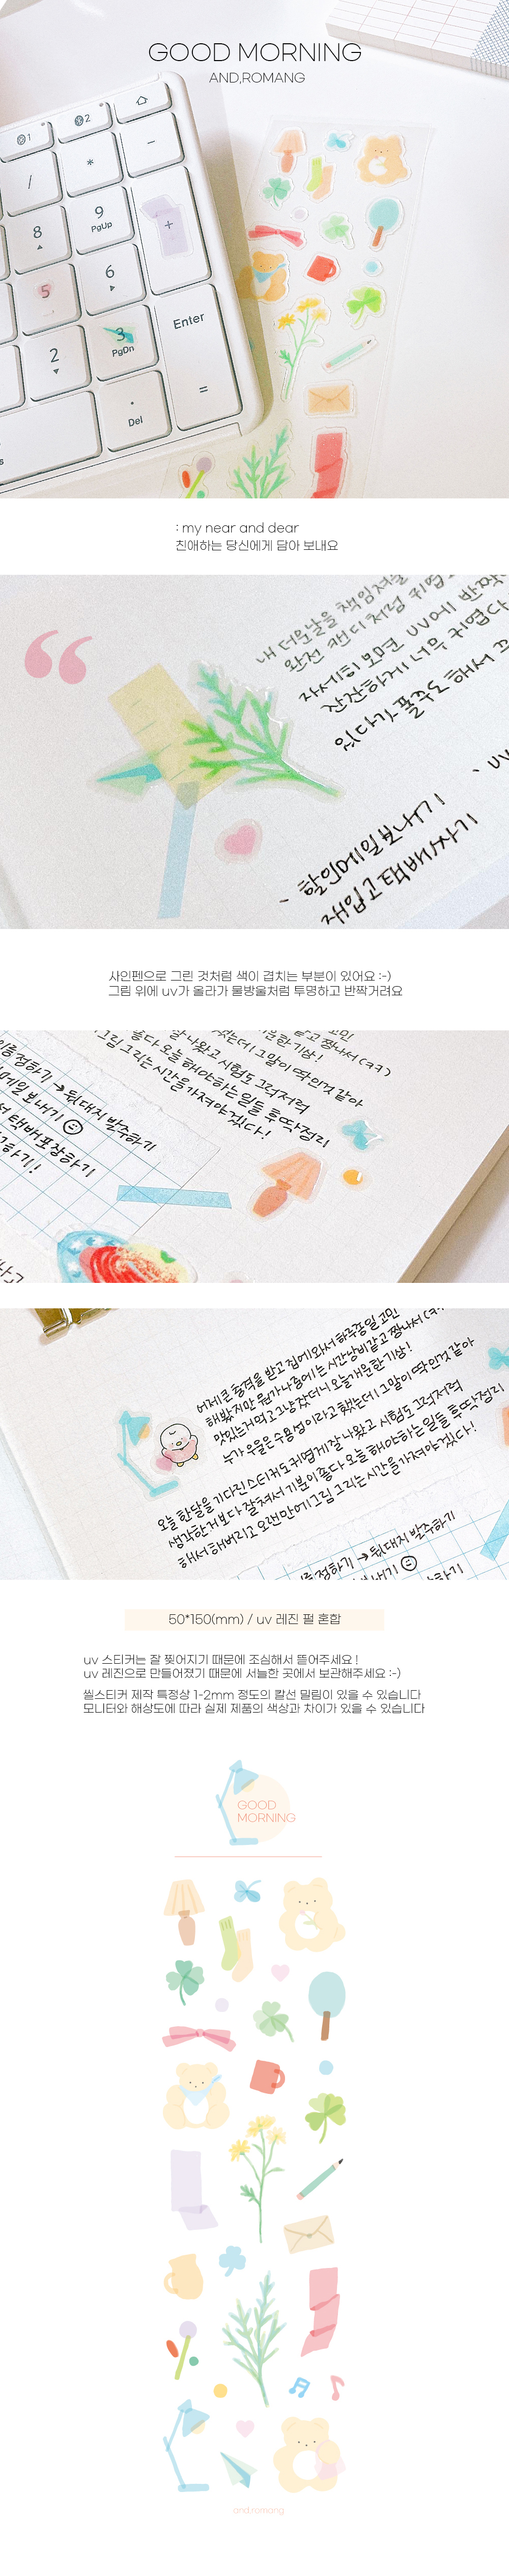 GOOD MORNING
AND,ROMANG
1
2
/
*
-
8
9
PgUp
+
5
6
2
3
PgDn
Enter
.
Del
=
s
: my near and dear
친애하는 당신에게 담아 보내요
내 더모날을 책임져줄
완전 캔디처럼 귀엽
자세히 보면 UV에 반짝
잔잔하게 너무 귀엽다
있다가 폴꾸도 해서
- 할인메일보내기!
재입고택배싸기
사인펜으로 그린 것처럼 색이 겹치는 부분이 있어요 :-)
그림 위에 uv가 올라가 물방울처럼 투명하고 반짝거려요
는데 그말이 딱인것 같아
잘 나왔고 시험도 그럭저럭
좋다 오늘 해야하는 일들 후딱 정리
그림 그리는 시간을 가져야겠다!
점하기 → 뒷대지 발주하기
메일보내기
택배포장하기
어제 큰 충격을 받고 집에 와서 하루종일 고민
해봤지만 뭔가 나중에는 시간낭비같고 짱나서 (ㅋㅋ)
맛있는거 먹고 그냥 잤더니 오늘 개운한 기상!
누가 우울은 수용성이라고 했는데 그말이 딱인것 같아
오늘 한달을 기다린 스티커도 귀엽게 잘 나왔고 시험도 그럭저럭
생각한거보다 잘쳐서 기분이 좋다 오늘 해야하는 일들 후딱 정리
해서 해버리고 오랜만에 그림 그리는 시간을 가져야겠다!
점하기 → 뒷대지 발주하기
50*150(mm) / uv 레진 펄 혼합
uv 스티커는 잘 찢어지기 때문에 조심해서 뜯어주세요 !
uv 레진으로 만들어졌기 때문에 서늘한 곳에서 보관해주세요 :-)
씰스티커 제작 특정상 1-2mm 정도의 칼선 밀림이 있을 수 있습니다
모니터와 해상도에 따라 실제 제품의 색상과 차이가 있을 수 있습니다
GOOD
MORNING
and,romang